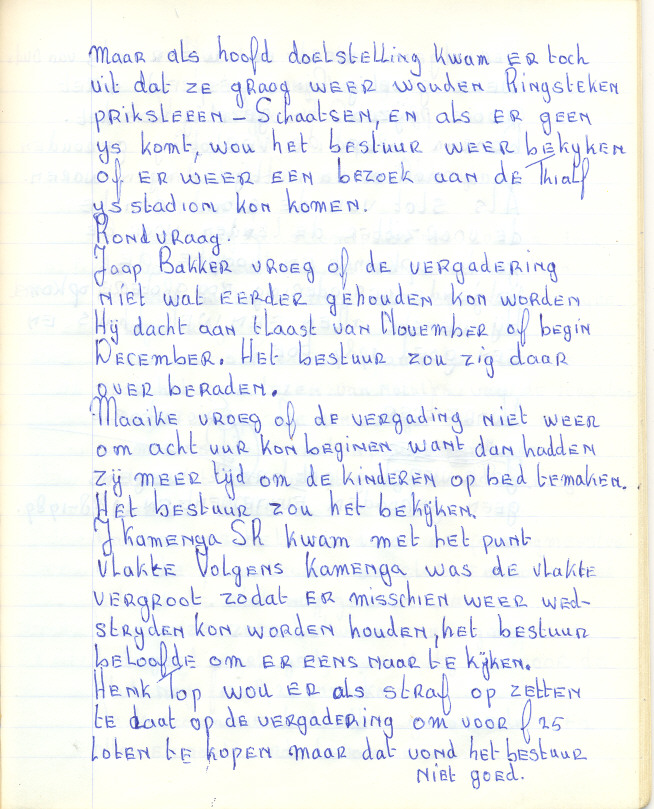 Maar als hoofd doelstelling kwam er toch
uit dat ze graag weer wouden Ringsteken
priksleeen - Schaatsen, en als er geen
ys komt, wou het bestuur weer bekyken
of er weer een bezoek aan de Thialf
ys stadion kon komen.
Rondvraag.
Jaap Bakker vroeg of de vergadering
niet wat eerder gehouden kon worden
Hy dacht aan tlaast van November of begin
December. Het bestuur zou zig daar
over beraden.
Maaike vroeg of de vergading niet weer
om acht uur kon beginen want dan hadden
zij meer tijd om de kinderen op bed temaken.
Het bestuur zou het bekijken.
J Kamenga SR kwam met het punt
vlakte Volgens Kamenga was de vlakte
vergroot zodat er misschien weer wed-
stryden kon worden houden, het bestuur
beloofde om er eens naar te kijken.
Henk Top wou er als straf op zetten
te laat op de vergadering om voor f 25
loten te kopen maar dat vond het bestuur
niet goed.